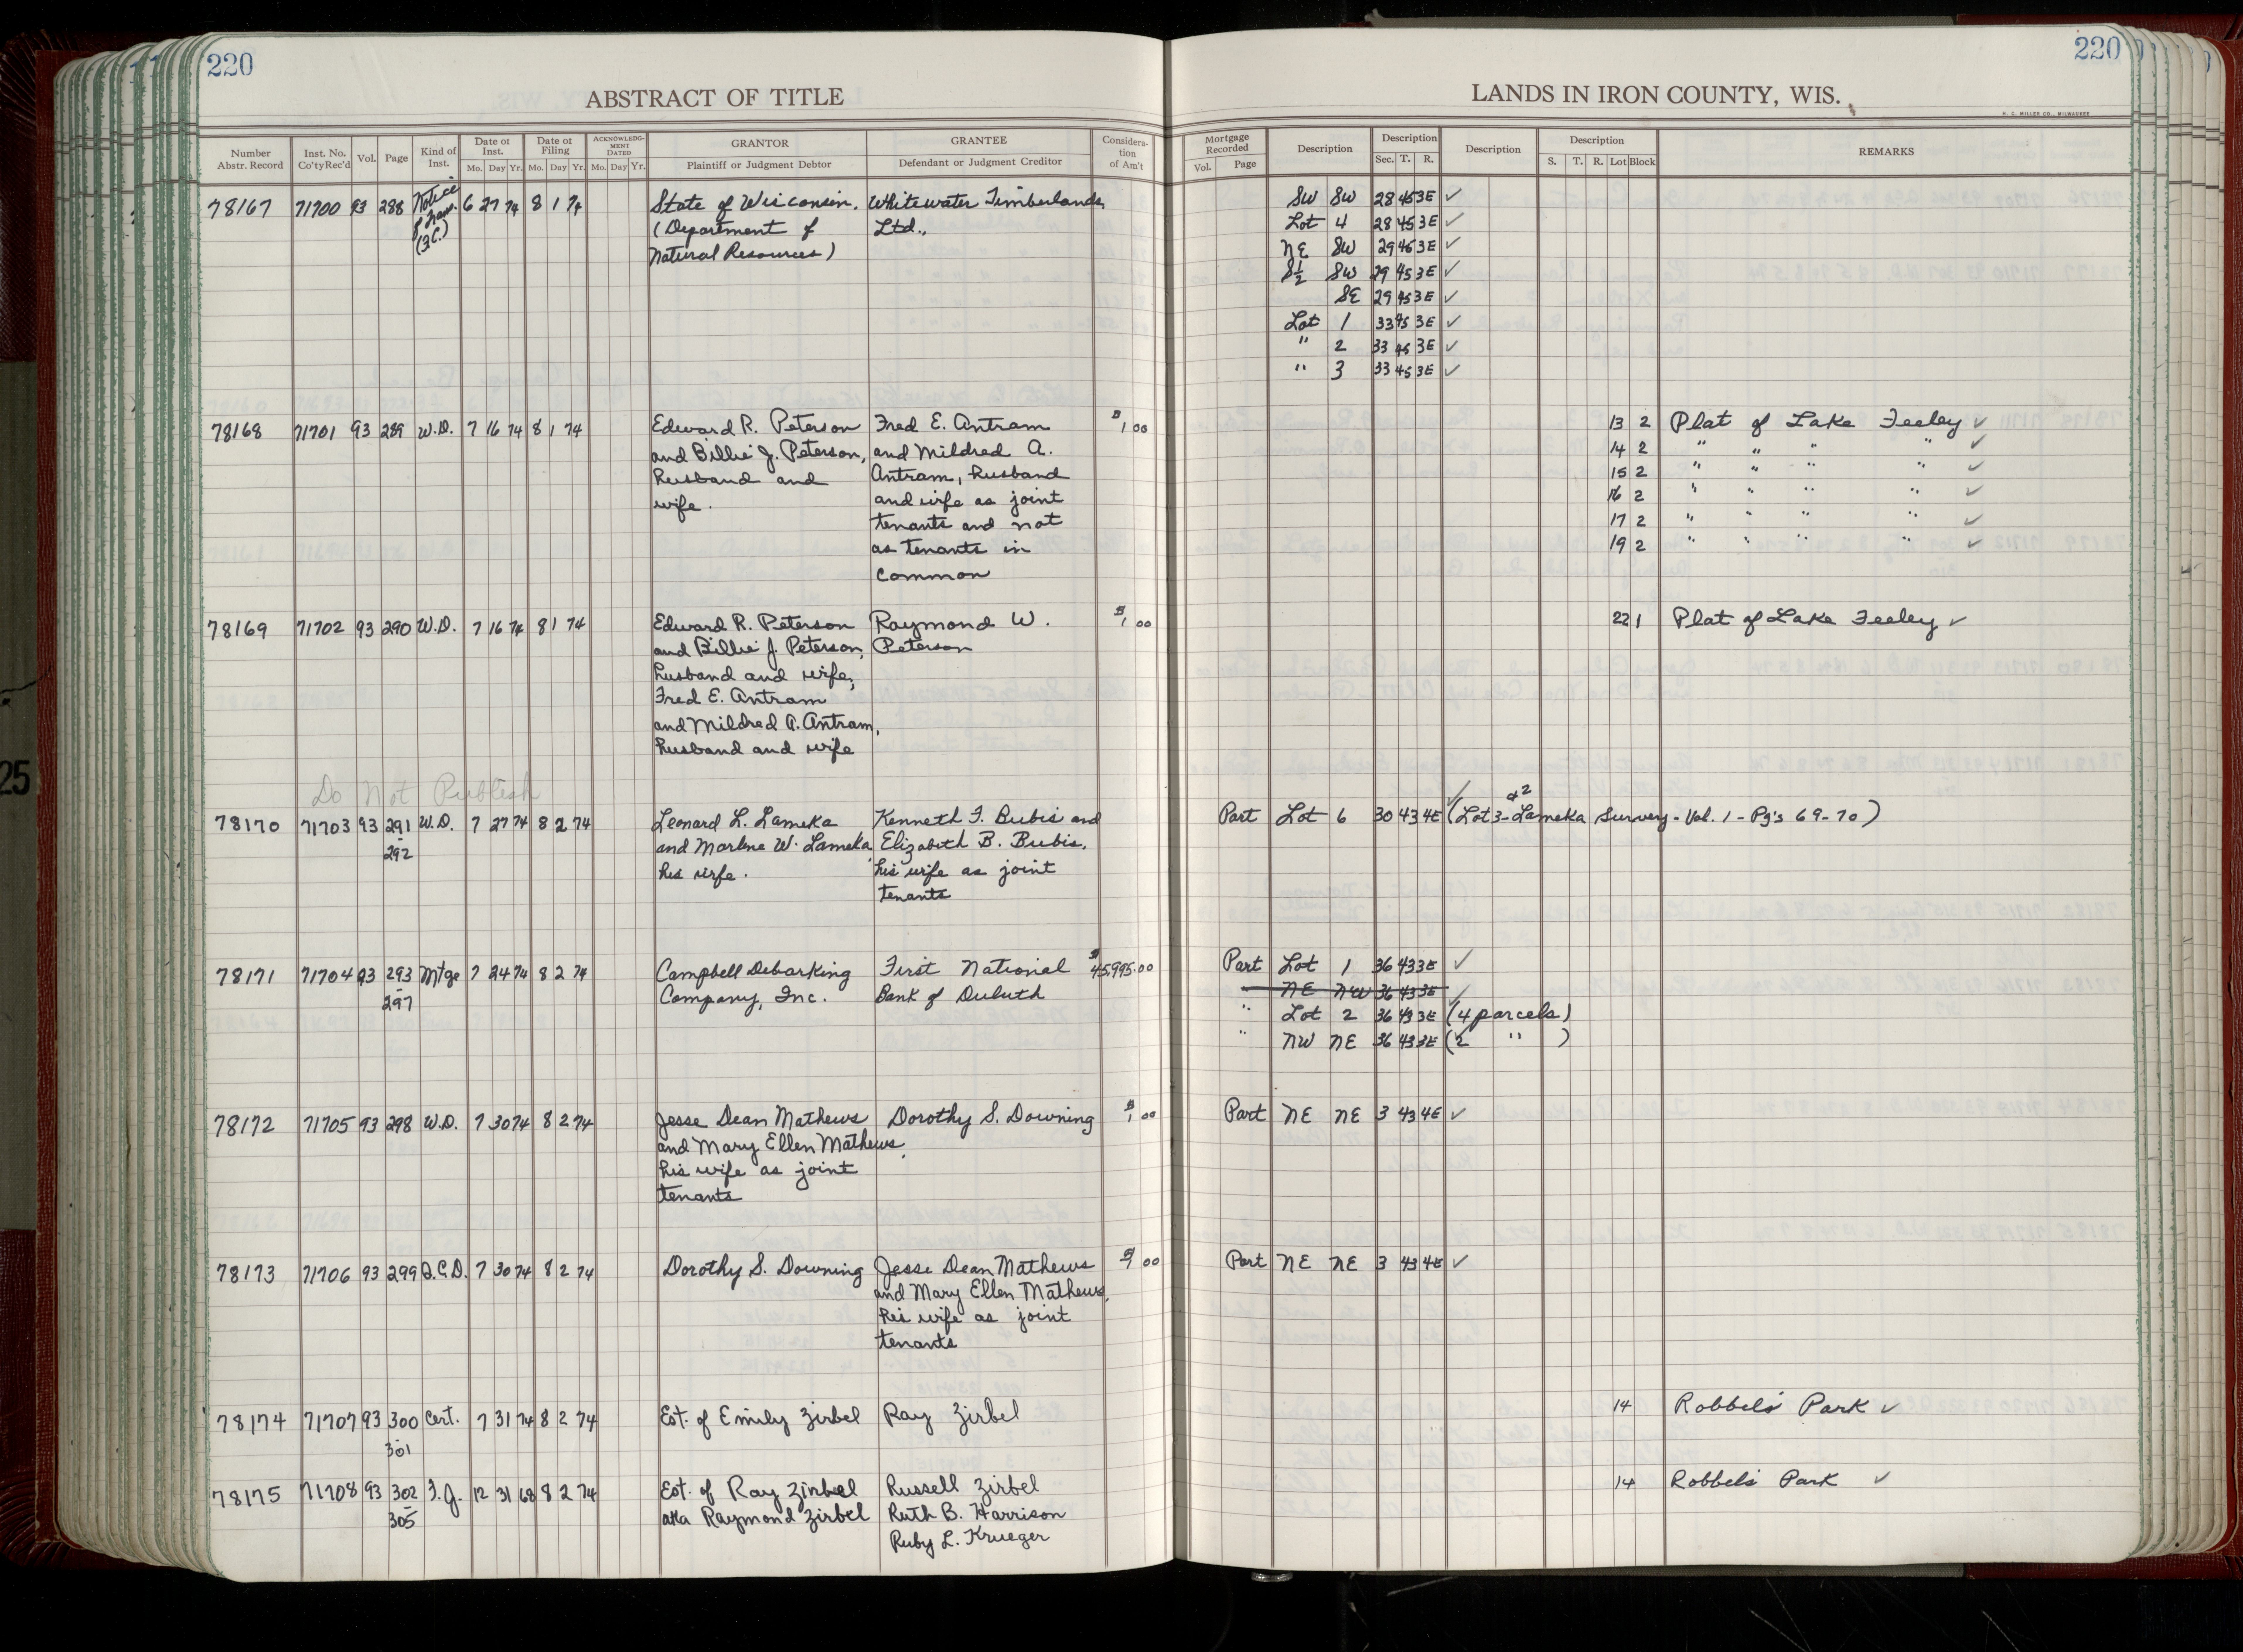 220
220
ABSTRACT OF TITLE
LANDS IN IRON COUNTY, WIS.
H. C. MILLER CO., MILWAUKEE
Number Abstr. Record | Inst. No. Co'ty Rec'd | Vol. | Page | Kind of Inst. | Date of Inst. Mo. Day Yr. | Date of Filing Mo. Day Yr. | ACKNOWLEDGMENT DATED Mo. Day Yr. | GRANTOR Plaintiff or Judgment Debtor | GRANTEE Defendant or Judgment Creditor | Consideration of Am't | Mortgage Recorded Vol. Page | Description | Description Sec. T. R. | Description | Description S. T. R. Lot Block | REMARKS
78167 71700 93 288 Notice 6 27 74 8 1 74 State of Wisconsin. Whitewater Timberlands, SW SW 28 45 3E ✓
(Department of Ltd., Lot 4 28 45 3E ✓
Natural Resources) NE SW 29 45 3E ✓
S½ SW 29 45 3E ✓
SE 29 45 3E ✓
Lot 1 33 45 3E ✓
" 2 33 45 3E ✓
" 3 33 45 3E ✓
78168 71701 93 289 W.D. 7 16 74 8 1 74 Edward R. Peterson Fred E. Antram $1 00 13 2 Plat of Lake Feeley ✓
and Billie J. Peterson, and Mildred A. 14 2 " " " " ✓
husband and Antram, husband 15 2 " " " " ✓
wife. and wife as joint 16 2 " " " " ✓
tenants and not 17 2 " " " " ✓
as tenants in 19 2 " " " " ✓
common
78169 71702 93 290 W.D. 7 16 74 8 1 74 Edward R. Peterson Raymond W. $1 00 22 1 Plat of Lake Feeley ✓
and Billie J. Peterson, Peterson
husband and wife;
Fred E. Antram
and Mildred A. Antram,
husband and wife
Do Not Publish
78170 71703 93 291-292 W.D. 7 27 74 8 2 74 Leonard L. Lameka Kenneth F. Bubis and Part Lot 6 30 43 4E ✓ (Lot 3 & 2 - Lameka Survey - Vol. 1 - Pg's 69-70)
and Marlene W. Lameka, Elizabeth B. Bubis,
his wife. his wife as joint
tenants
78171 71704 93 293-297 Mtge 7 24 74 8 2 74 Campbell Debarking First National $45,995.00 Part Lot 1 36 43 3E ✓
Company, Inc. Bank of Duluth NE NW 36 43 3E ✓
" Lot 2 36 43 3E (4 parcels)
" NW NE 36 43 3E (2 " )
78172 71705 93 298 W.D. 7 30 74 8 2 74 Jesse Dean Mathews Dorothy S. Downing $1 00 Part NE NE 3 43 4E ✓
and Mary Ellen Mathews,
his wife as joint
tenants
78173 71706 93 299 Q.C.D. 7 30 74 8 2 74 Dorothy S. Downing Jesse Dean Mathews $1 00 Part NE NE 3 43 4E ✓
and Mary Ellen Mathews,
his wife as joint
tenants
78174 71707 93 300-301 Cert. 7 31 74 8 2 74 Est. of Emily Zirbel Ray Zirbel 14 Robbels' Park ✓
78175 71708 93 302-305 F.J. 12 31 68 8 2 74 Est. of Ray Zirbel Russell Zirbel 14 Robbels Park ✓
aka Raymond Zirbel Ruth B. Harrison
Ruby L. Krueger
25